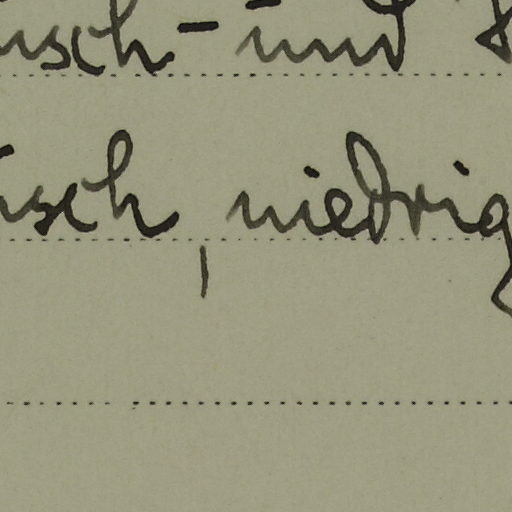 usch - und
usch, niedrig